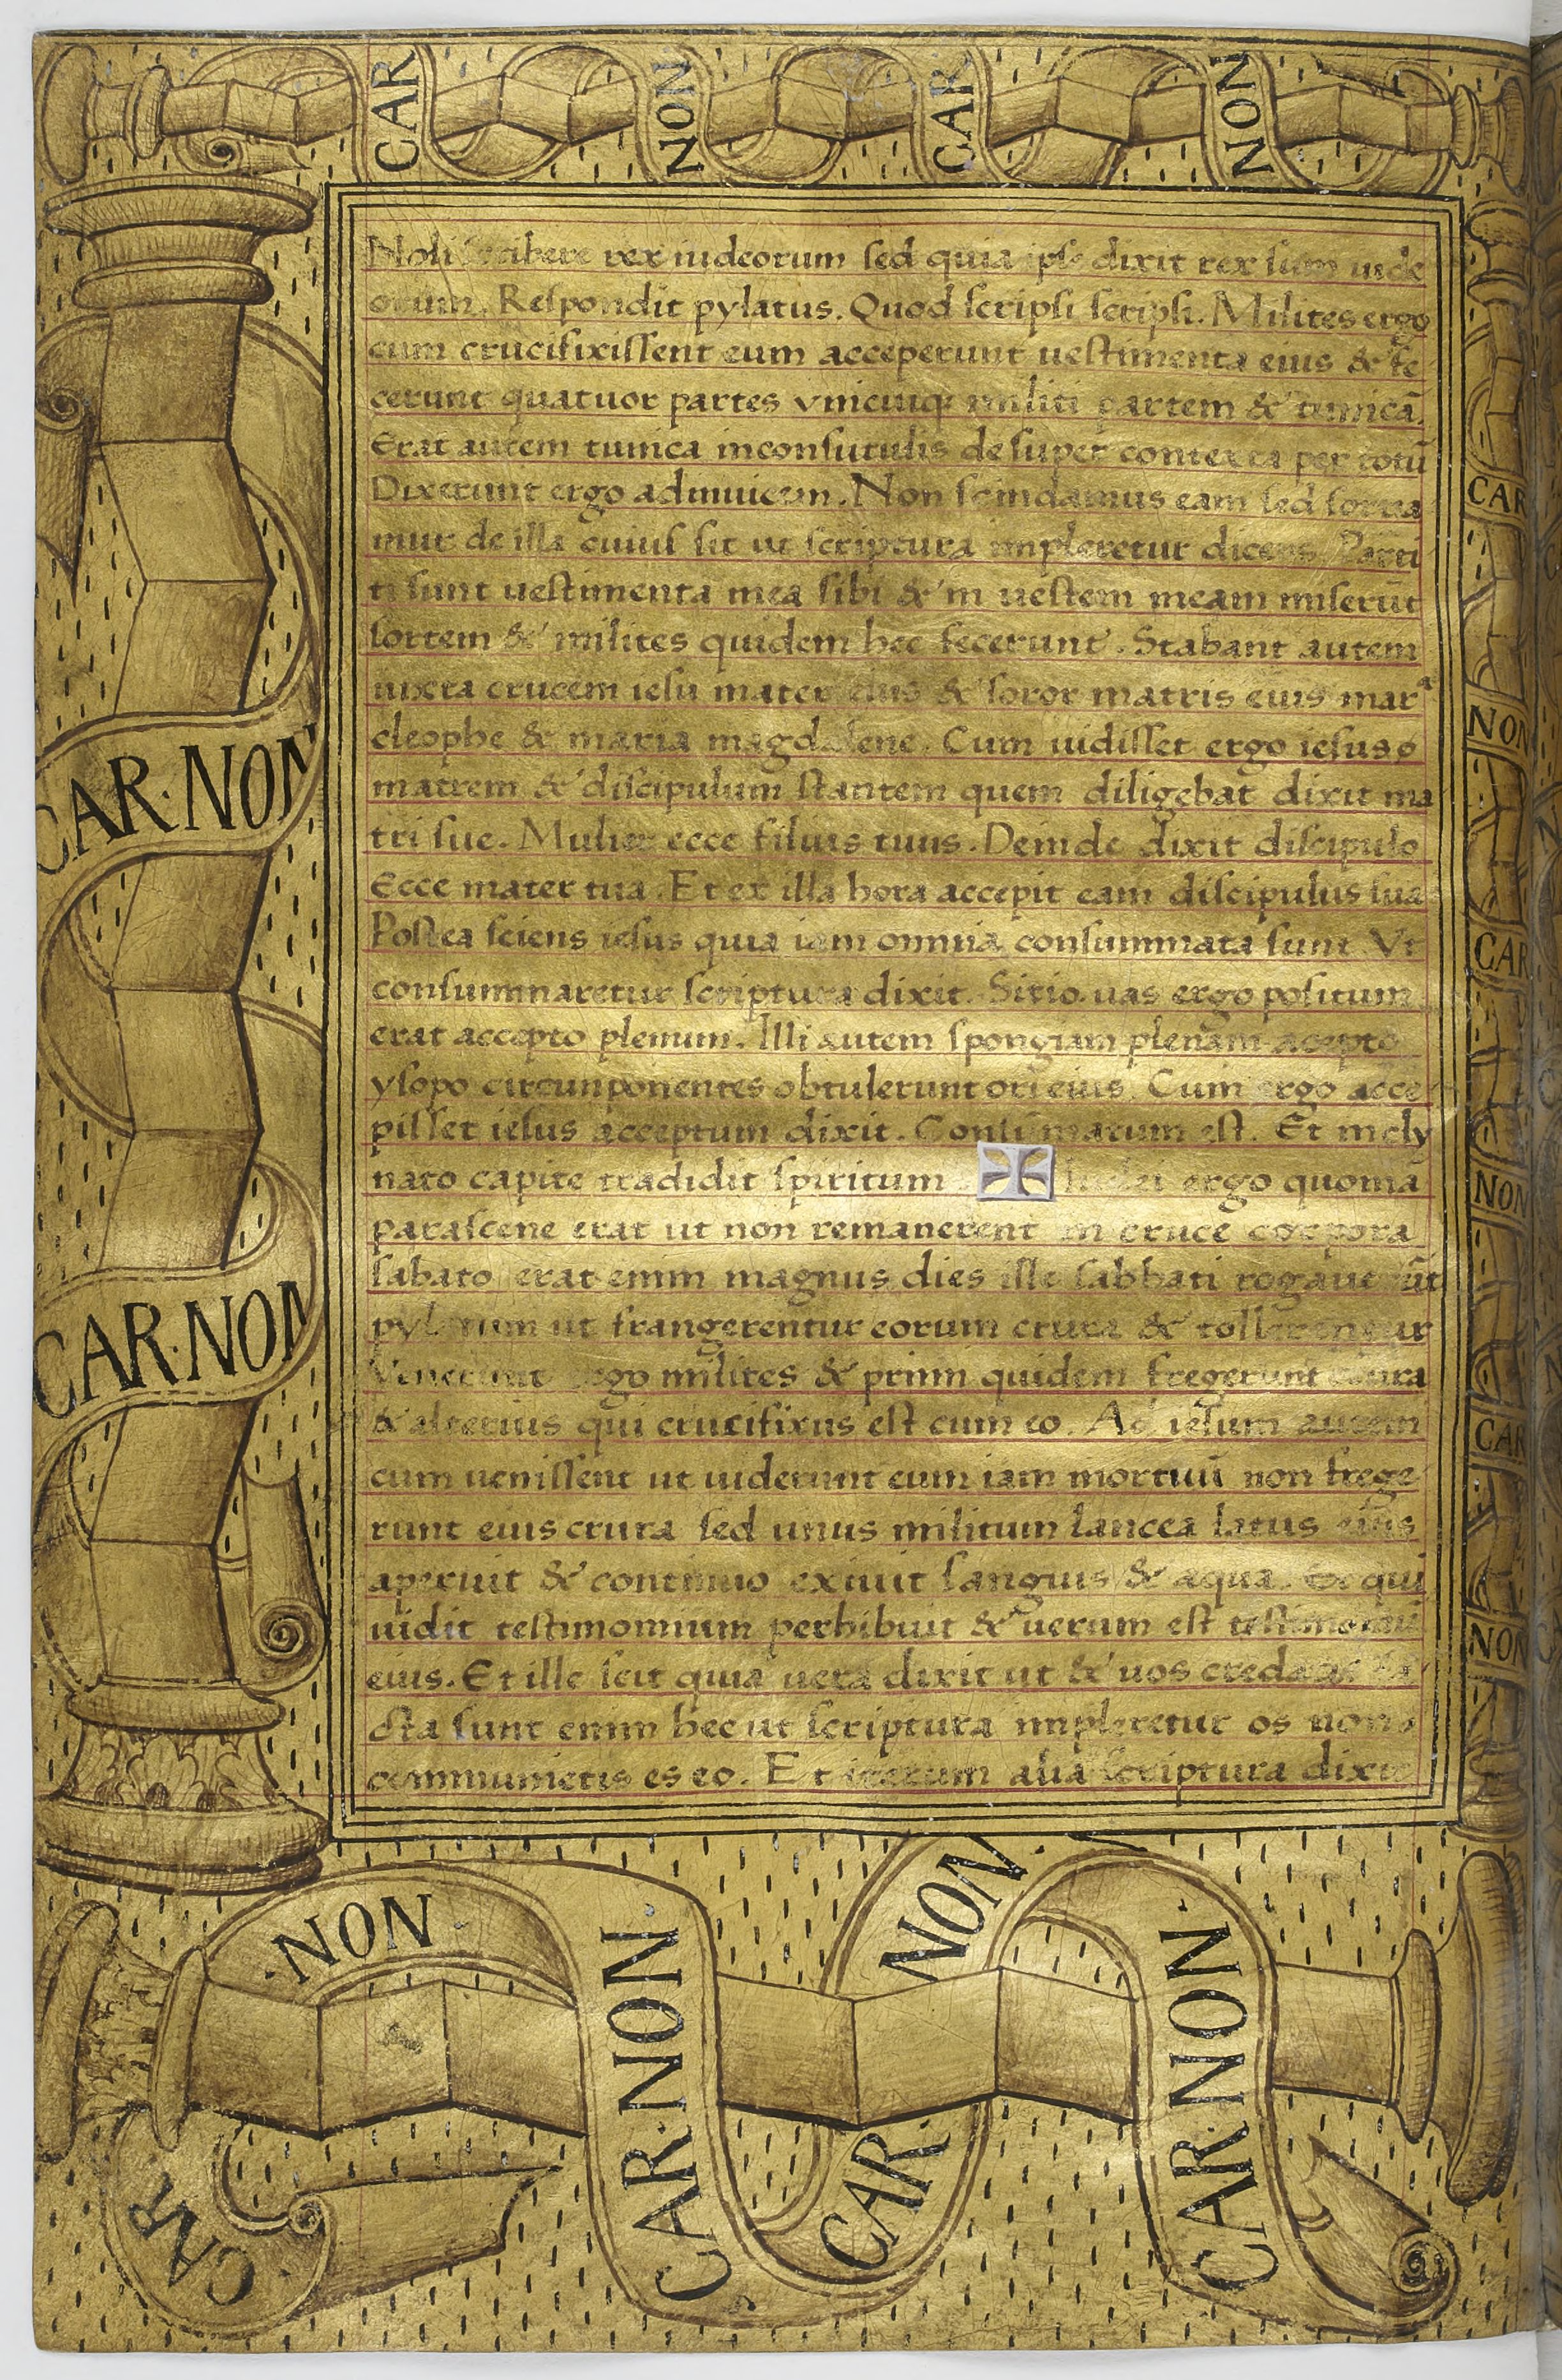 CAR NON CAR NON
Noli scribere rex iudeorum sed quia ipse dixit rex sum iude
orum. Respondit pylatus. Quod scripsi scripsi. Milites ergo
cum crucifixissent eum acceperunt uestimenta eius & fe
cerunt quatuor partes vnicuiq; militi partem & tunicā.
Erat autem tunica inconsutulis desuper contexta per totū
Dixerunt ergo adinuicem. Non scindamus eam sed sortia
mur de illa cuius sit ut scriptura impleretur dicens Parti
ti sunt uestimenta mea sibi & in uestem meam miserūt
sortem & milites quidem hec fecerunt. Stabant autem
iuxta crucem iesu mater eius & soror matris eius marᵃ
cleophe & maria magdalene. Cum uidisset ergo iesus
matrem & discipulum stantem quem diligebat dixit ma
tri sue. Mulier ecce filius tuus. Deinde dixit discipulo
Ecce mater tua. Et ex illa hora accepit eam discipulus sua
Postea sciens iesus quia iam omnia consummata sunt Vt
consummaretur scriptura dixit. Sitio. uas ergo positum
erat accepto plenum. Illi autem spongiam plenam acepto
ysopo circunponentes obtulerunt ori eius. Cum ergo acce
pisset iesus acceptum dixit. Consūmatum est. Et incly
nato capite tradidit spiritum ergo quoniā
parascene erat ut non remanerent in cruce corpora
sabato erat enim magnus dies ille sabbati rogauerūt
pylatum ut frangerentur eorum crura & tollerentur
Venerunt ergo milites & primi quidem fregerunt crura
& alterius qui crucifixus est cum eo. Ad iesum autem
cum uenissent ut uiderunt eum iam mortuū non frege
runt eius crura sed unus militum lancea latus eius
aperuit & continuo exiuit sanguis & aqua. Et qui
uidit testimonium perhibuit & uerum est testimoniū
eius. Et ille scit quia uera dixit ut & uos credatis
cta sunt enim hec ut scriptura impleretur os non
communietis es eo. Et iterum alia scriptura dixit
CAR·NON
CAR·NON
CAR
NON
CAR
NON
CAR
NON
NON
CAR·NON·
NON
CAR·NON·
CAR
CAR